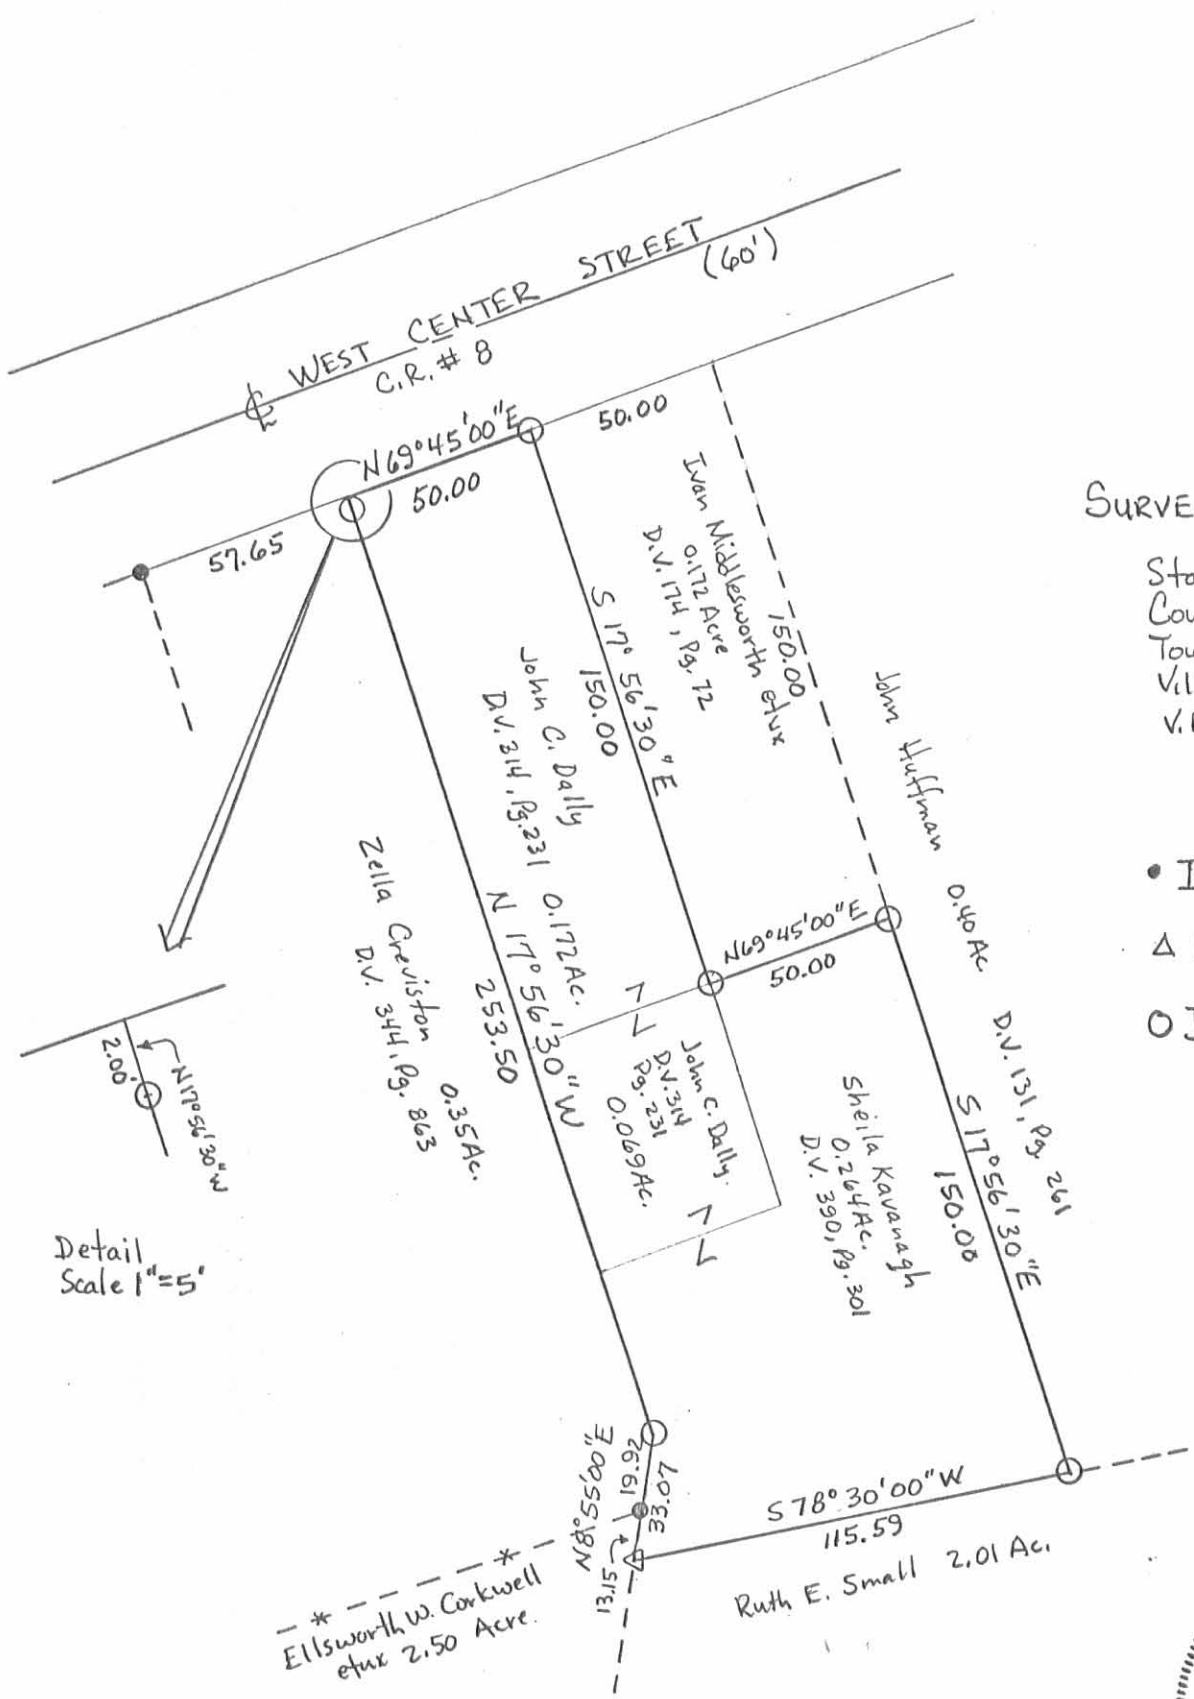 ℄ WEST CENTER STREET
(60')
C.R. # 8
N69°45'00"E
50.00
50.00
57.65
Ivan Middlesworth etux
0.172 Acre
D.V. 174, Pg. 72
150.00
S 17° 56'30"E
150.00
John C. Dally
D.V. 314, Pg. 231 0.172 Ac.
N 17° 56'30" W
253.50
Zella Creviston 0.35 Ac.
D.V. 344, Pg. 863
John Huffman 0.40 Ac D.V. 131, Pg. 261
N69°45'00"E
50.00
John C. Dally.
D.V. 314
Pg. 231
0.069 Ac.
Sheila Kavanagh
0.264 Ac.
D.V. 390, Pg. 301
S 17°56'30"E
150.00
2.00'
N17°56'30"W
Detail
Scale 1"=5'
N8°55'00"E
19.92
33.07
13.15
S 78°30'00" W
115.59
Ruth E. Small 2.01 Ac.
Ellsworth W. Corkwell
etux 2.50 Acre.
SURVE
Sta
Cou
Tow
Vil
V.
• I
Δ
O